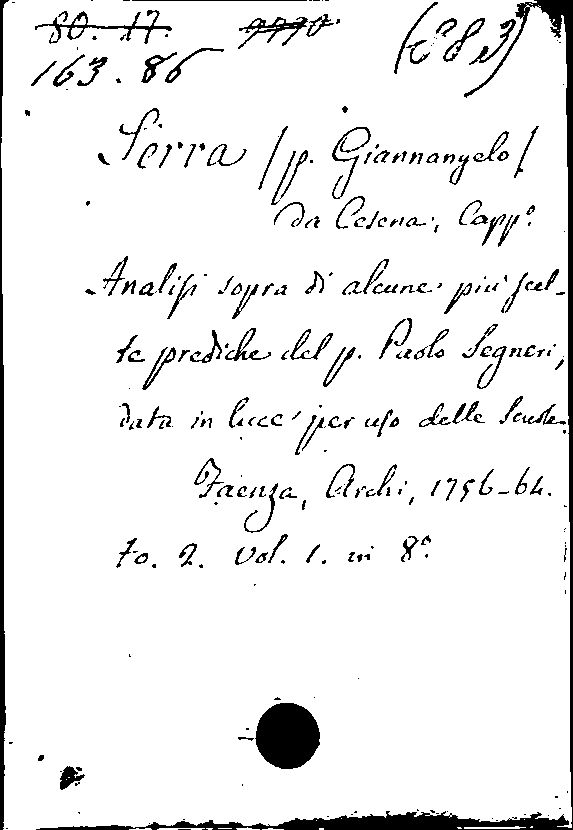 80. 17. 9770
163. 86 (883)
Serra / p. Giannangelo /
da Cesena, Capp.º
Analisi sopra di alcune più scel-
te prediche del p. Paolo Segneri,
data in luce per uso delle Scuole.
Faenza, Archi, 1756-64.
to. 2. vol. 1. in 8º.